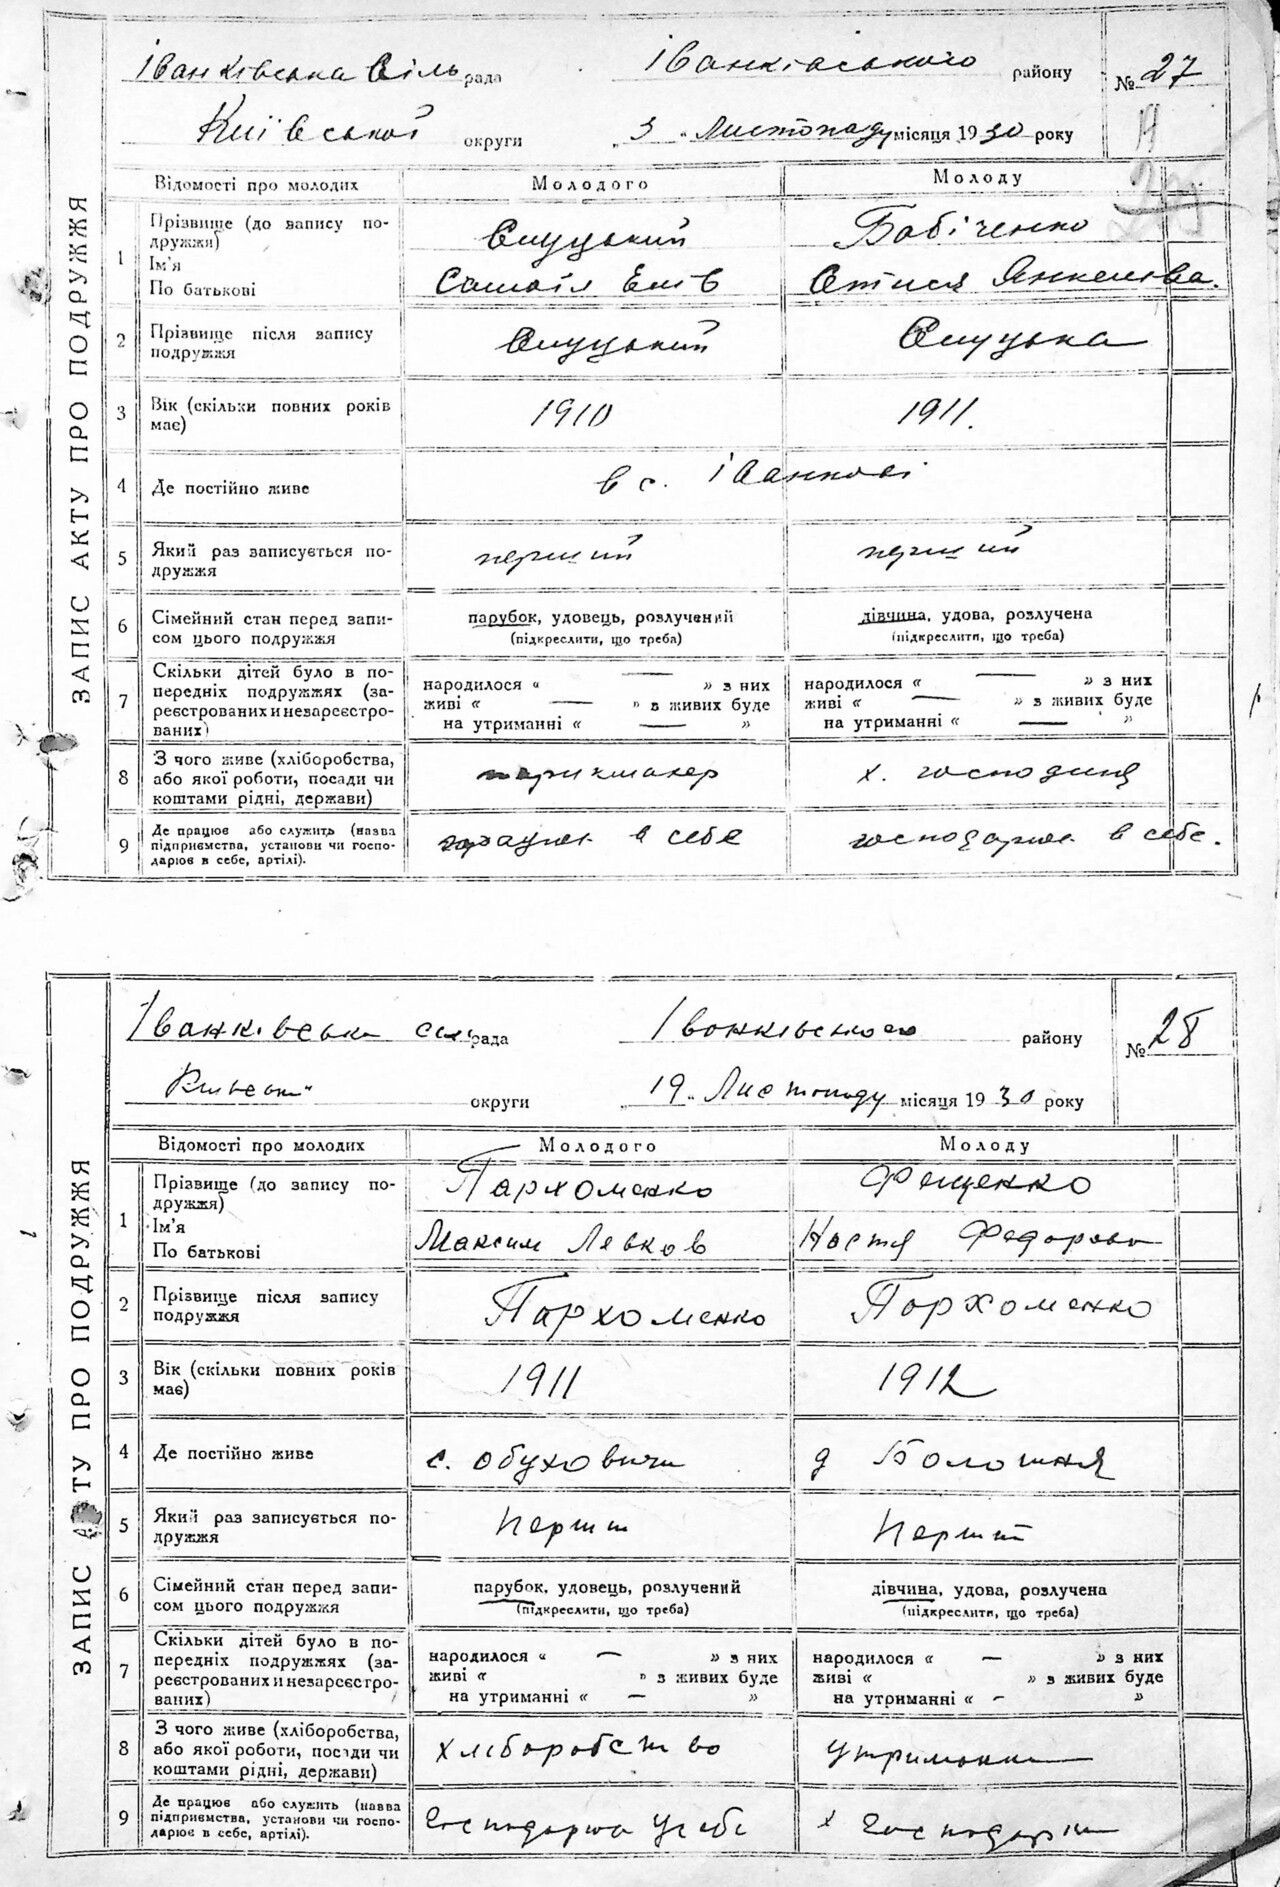 ЗАПИС АКТУ ПРО ПОДРУЖЖЯ
Іванківська Сіль рада Іванківського району № 27
Київської округи 3 „ Листопаду місяця 1930 року
Відомості про молодих Молодого Молоду
1 Прізвище (до запису подружжя) Слуцький Бабіченко
Ім'я
По батькові Самоіл Янкелівна.
2 Прізвище після запису подружжя Слуцький Слуцька
3 Вік (скільки повних років має) 1910 1911.
4 Де постійно живе в с. Іванкові
5 Який раз записується подружжя перший перший
6 Сімейний стан перед записом цього подружжя парубок, удовець, розлучений (підкреслити, що треба) дівчина, удова, розлучена (підкреслити, що треба)
7 Скільки дітей було в попередніх подружжях (зареєстрованих и незареєстрованих) народилося « — » з них живі « — » з живих буде на утриманні « — » народилося « — » з них живі « — » з живих буде на утриманні « — »
8 З чого живе (хліборобства, або якої роботи, посади чи коштами рідні, держави) парикмахер х. господиня
9 Де працює або служить (назва підприємства, установи чи господарює в себе, артілі). працює в себе господарює в себе.
ЗАПИС АКТУ ПРО ПОДРУЖЖЯ
Іванківська сіль рада Іванківського району № 28
округи „ 19 „ Листопаду місяця 1930 року
Відомості про молодих Молодого Молоду
1 Прізвище (до запису подружжя) Пархоменко Фещенко
Ім'я
По батькові Максим Левков Настя Федорова
2 Прізвище після запису подружжя Пархоменко Пархоменко
3 Вік (скільки повних років має) 1911 1912
4 Де постійно живе с. Обуховичи д Болотня
5 Який раз записується подружжя Перший Перший
6 Сімейний стан перед записом цього подружжя парубок, удовець, розлучений (підкреслити, що треба) дівчина, удова, розлучена (підкреслити, що треба)
7 Скільки дітей було в попередніх подружжях (зареєстрованих и незареєстрованих) народилося « — » з них живі « » з живих буде на утриманні « — » народилося « — » з них живі « » з живих буде на утриманні « — »
8 З чого живе (хліборобства, або якої роботи, посади чи коштами рідні, держави) хліборобство
9 Де працює або служить (назва підприємства, установи чи господарює в себе, артілі). у себе х